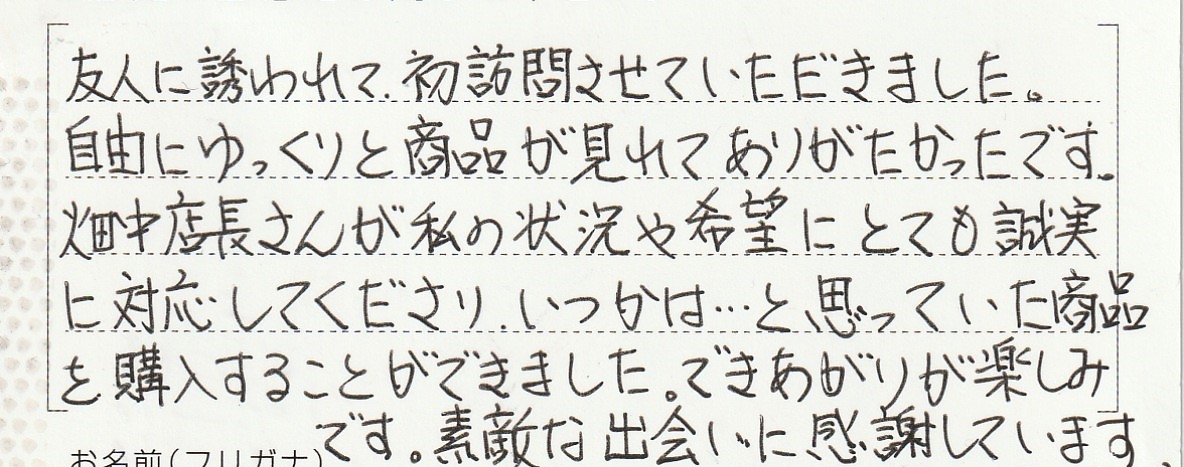 友人に誘われて、初訪問させていただきました。
自由にゆっくりと商品が見れてありがたかったです。
畑中店長さんが私の状況や希望にとても誠実
に対応してくださり、いつかは…と思っていた商品
を購入することができました。できあがりが楽しみ
です。素敵な出会いに感謝しています。
お名前(フリガナ)